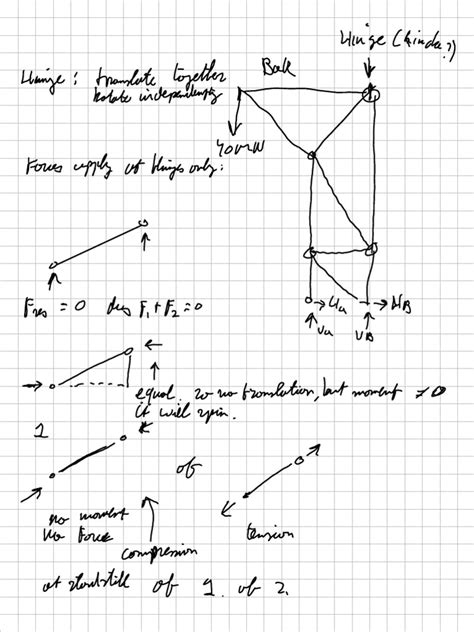 Hinge (kinda?)
Hinge: translate together
Rotate independently
Balk
400 kN
Forces apply at Hinges only:
F_res = 0 dus F_1 + F_2 = 0
H_a H_B
V_a V_B
equal. so no translation, but moment ≠ 0
it will spin.
1
of
no moment
no Force
compression
tension
at standstill of 1. of 2.